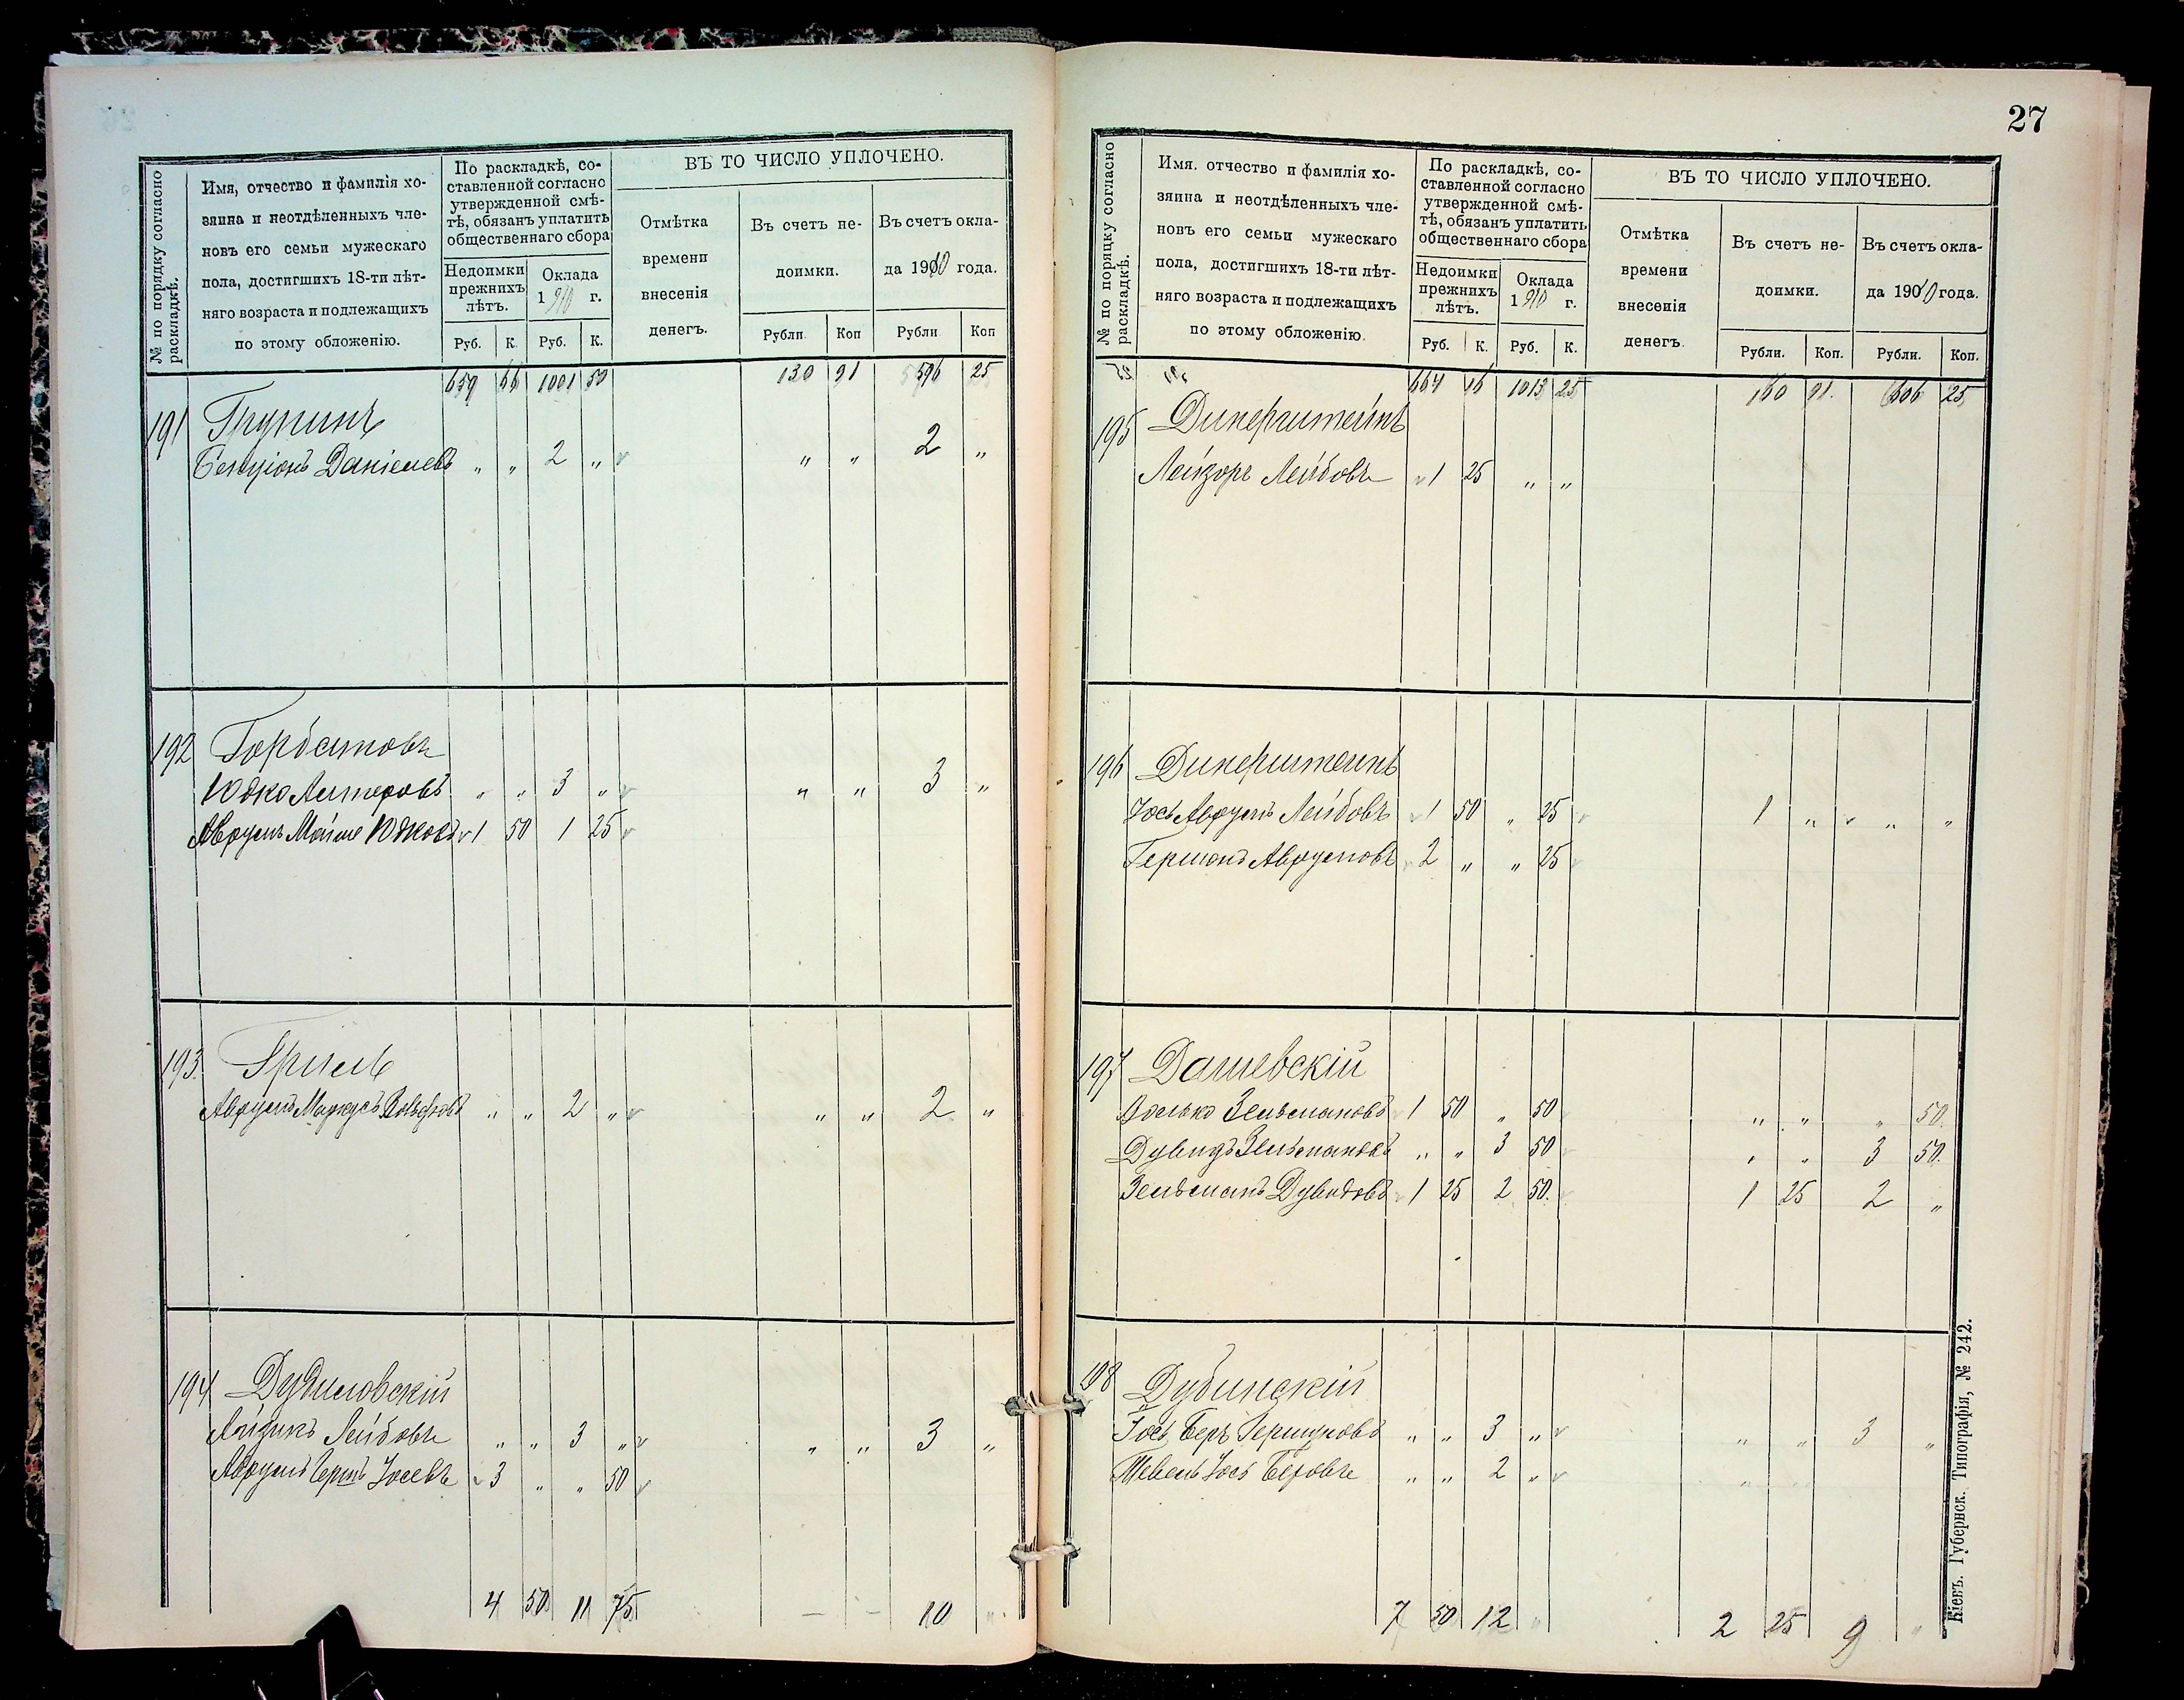 № по порядку согласно раскладкѣ.
Имя, отчество и фамилія хо-
зяина и неотдѣленныхъ чле-
новъ его семьи мужескаго
пола, достигшихъ 18-ти лѣт-
няго возраста и подлежащихъ
по этому обложенію.
По раскладкѣ, со-
ставленной согласно
утвержденной смѣ-
тѣ, обязанъ уплатить
общественнаго сбора
Недоимки
прежнихъ
лѣтъ.
Оклада
1910 г.
Руб. К. Руб. К.
ВЪ ТО ЧИСЛО УПЛОЧЕНО.
Отмѣтка
времени
внесенія
денегъ.
Въ счетъ не-
доимки.
Рубли Коп
Въ счетъ окла-
да 1910 года.
Рубли Коп
659 66 1001 50 130 91 596 25
191 Грунинъ
Бенціонъ Даніелевъ " " 2 " " " 2 "
192 Горбатовъ
Юдко Лейзеровъ " " 3 " " " 3 "
Аврумъ Мойше Юдковъ 1 50 1 25
193. Гриль
Аврумъ Маркусъ Вольфовъ " " 2 " " " 2 "
194 Дудиловскій
Айзикъ Лейбовъ " " 3 " " " 3 "
Аврумъ Гершъ Іосевъ 3 " " 50
4 50 11 75 — — 10 "
27
№ по порядку согласно раскладкѣ.
Имя. отчество и фамилія хо-
зяина и неотдѣленныхъ чле-
новъ его семьи мужескаго
пола, достигшихъ 18-ти лѣт-
няго возраста и подлежащихъ
по этому обложенію.
По раскладкѣ, со-
ставленной согласно
утвержденной смѣ-
тѣ, обязанъ уплатить
общественнаго сбора
Недоимки
прежнихъ
лѣтъ.
Оклада
1910 г.
Руб. К. Руб. К.
ВЪ ТО ЧИСЛО УПЛОЧЕНО.
Отмѣтка
времени
внесенія
денегъ.
Въ счетъ не-
доимки.
Рубли. Коп.
Въ счетъ окла-
да 1910 года.
Рубли. Коп.
664 16 1013 25 130 91. 606 25
195 Динерштейнъ
Лейзоръ Лейбовъ 1 25 " "
196 Динерштейнъ
Іось Аврумъ Лейбовъ 1 50 " 25 1 " " "
Гершонъ Аврумовъ 2 " " 25
197 Дашевскій
Волько Зельмановъ 1 50 " 50 " " " 50.
Дувидъ Зельмановъ " " 3 50 " " 3 50.
Зельманъ Дувидовъ 1 25 2 50. 1 25 2 "
198 Дубинскій
Іось Беръ Гершуновъ " " 3 " " " 3 "
Шевель Іось Беровъ " " 2 "
7 50 12 " 2 25 9 "
Кіевъ. Губернск. Типографія, № 242.